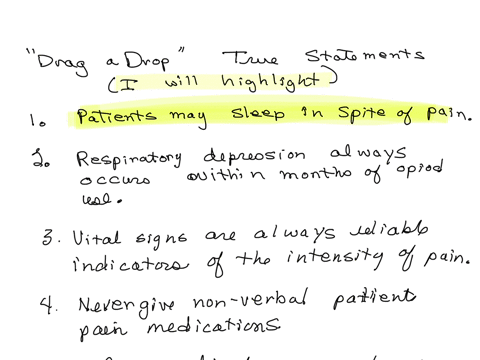 "Drag a Drop" True Statements
(I will highlight)
1. Patients may sleep in spite of pain.
2. Respiratory depression always
occurs within months of opiod
use.
3. Vital signs are always reliable
indicators of the intensity of pain.
4. Never give non-verbal patient
pain medications